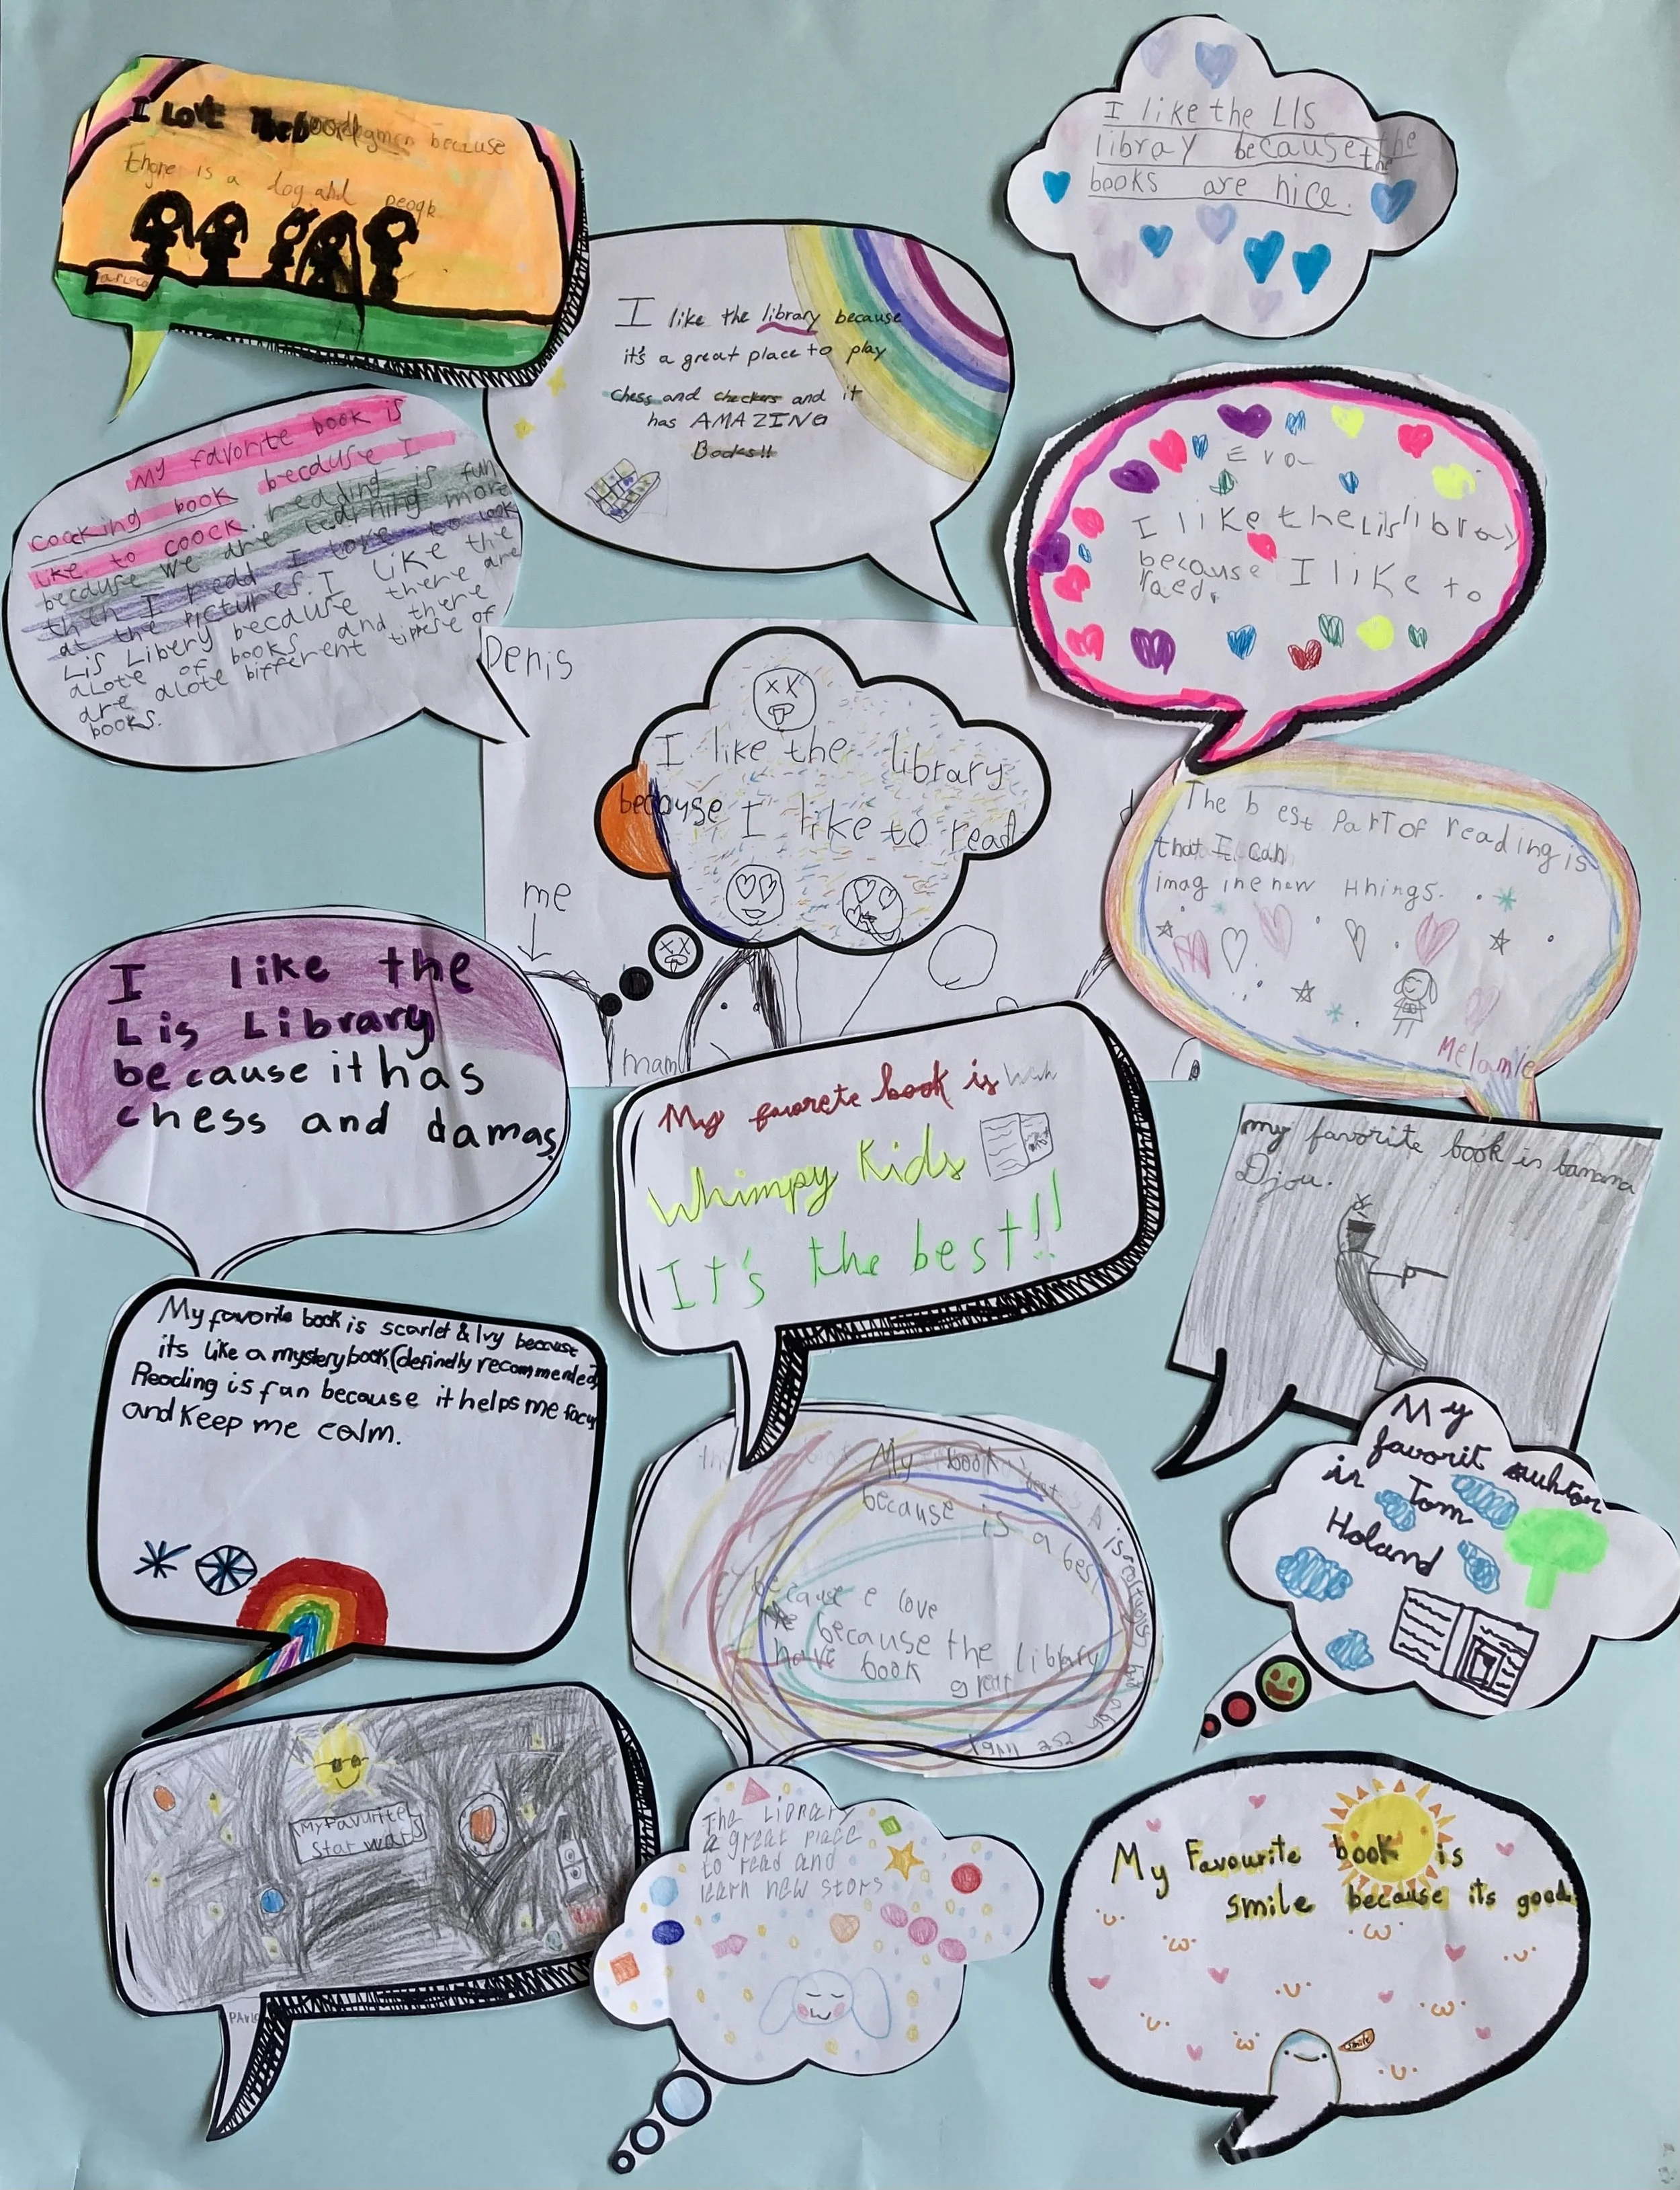 I Love The because
there is a dog and people
I like the LIS
library because the
the
books are nice.
I like the library because
it's a great place to play
chess and checkers and it
has AMAZING
Books!!
my favorite book is
coocking book becduse I
like to coock. reading is fun
becduse we are learning more
I redd I love to look
at the pictures. I like the
Lis Libery becduse there are
alote of books and there
are alote bifferent tippese of
books.
Eva
I like the Lis library
because I like to
raed.
Denis
I like the library
because I like to read
me
mam
The best part of reading is
that I can
imagine new thhings.
Melanie
I like the
Lis Library
because it has
chess and damas.
My favorete book is
Whimpy Kids
It's the best!!
my favorite book is banana
Djou.
My favorite book is scarlet & Ivy because
its like a mystery book (definedly recommended)
Reading is fun because it helps me focus
and keep me calm.
My book best
because is a best
because e love
because the library
have book great
My
favorit auhtor
is Tom
Holand
My Favourite
Star wars
The Library
a great place
to read and
learn new stors
My Favourite book is
smile because its good.
smile